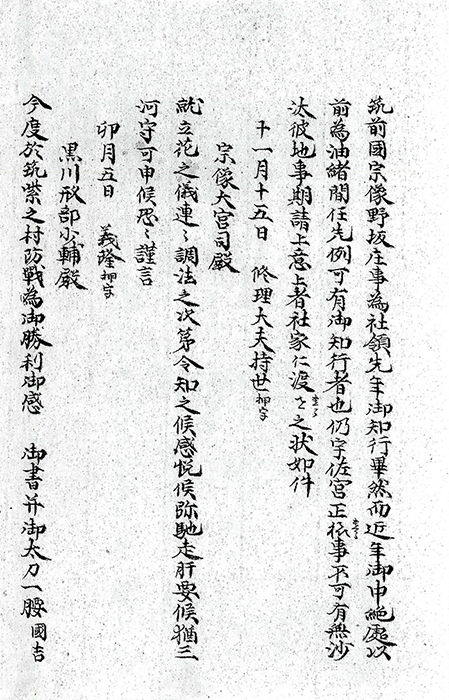 筑前國宗像野坂庄事為社領先年御知行畢然而近年御中絶處以
前為油緒間任先例可有御知行者也仍宇佐宮正祓事不可有無沙
汰彼地事期請上意上者社家仁渡之状如件
十一月十五日　修理大夫持世押字
宗像大宮司殿
就立花之儀連々調法之次第令知之候感悦候弥馳走肝要候猶三
河守可申候恐々謹言
卯月五日　義隆押字
黒川刑部少輔殿
今度於筑紫之村防戦為御勝利御感　御書并御太刀一腰國吉